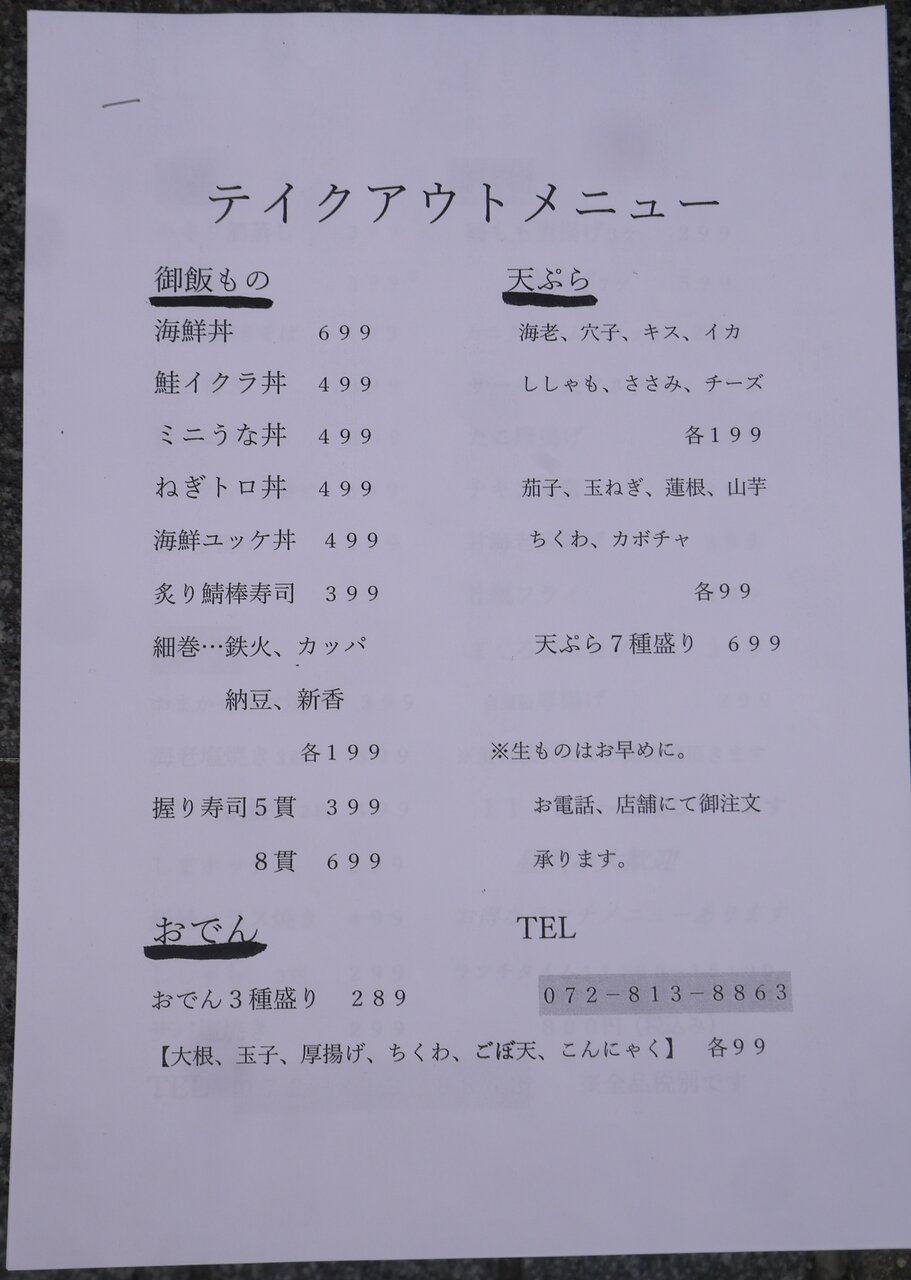 テイクアウトメニュー
御飯もの
海鮮丼 699
鮭イクラ丼 499
ミニうな丼 499
ねぎトロ丼 499
海鮮ユッケ丼 499
炙り鯖棒寿司 399
細巻…鉄火、カッパ
納豆、新香
各199
握り寿司5貫 399
8貫 699
おでん
おでん3種盛り 289
【大根、玉子、厚揚げ、ちくわ、ごぼ天、こんにゃく】 各99
天ぷら
海老、穴子、キス、イカ
ししゃも、ささみ、チーズ
各199
茄子、玉ねぎ、蓮根、山芋
ちくわ、カボチャ
各99
天ぷら7種盛り 699
※生ものはお早めに。
お電話、店舗にて御注文
承ります。
TEL
072-813-8863